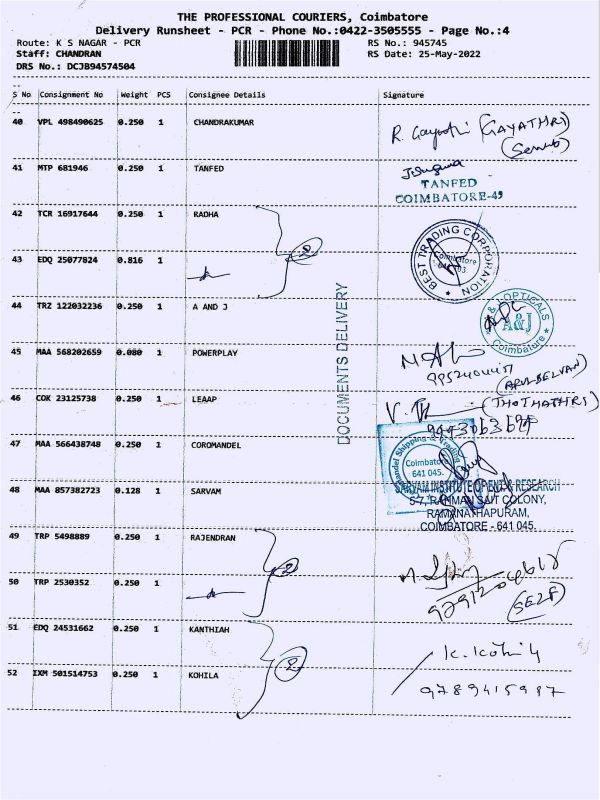 THE PROFESSIONAL COURIERS, Coimbatore
Delivery Runsheet - PCR - Phone No.:0422-3505555 - Page No.:4
Route: K S NAGAR - PCR RS No.: 945745
Staff: CHANDRAN RS Date: 25-May-2022
DRS No.: DCJB94574504
S No Consignment No Weight PCS Consignee Details Signature
40 VPL 498490625 0.250 1 CHANDRAKUMAR
R. Gayathri (GAYATHRI)
41 MTP 681946 0.250 1 TANFED
TANFED
COIMBATORE-45
42 TCR 16917644 0.250 1 RADHA
2
BEST TRADING CORPORATION
Coimbatore
43 EDQ 25077824 0.816 1
44 TRZ 122032236 0.250 1 A AND J
OPTICALS
A&J
Coimbatore
DOCUMENTS DELIVERY
45 MAA 568202659 0.080 1 POWERPLAY
(ARULSELVAN)
46 COK 23125738 0.250 1 LEAAP
(THOTHATHRI)
47 MAA 566438748 0.250 1 COROMANDEL
Shipping & Trading
Coimbatore
641 045.
48 MAA 857382723 0.128 1 SARVAM
SARVAM INSTITUTE OF ENT & RESEARCH
57, RAHMAN SAIT COLONY,
RAMANATHAPURAM,
COIMBATORE - 641 045.
49 TRP 5498889 0.250 1 RAJENDRAN
2
50 TRP 2530352 0.250 1
(SELF)
51 EDQ 24531662 0.250 1 KANTHIAH
2
52 IXM 501514753 0.250 1 KOHILA
9789415987